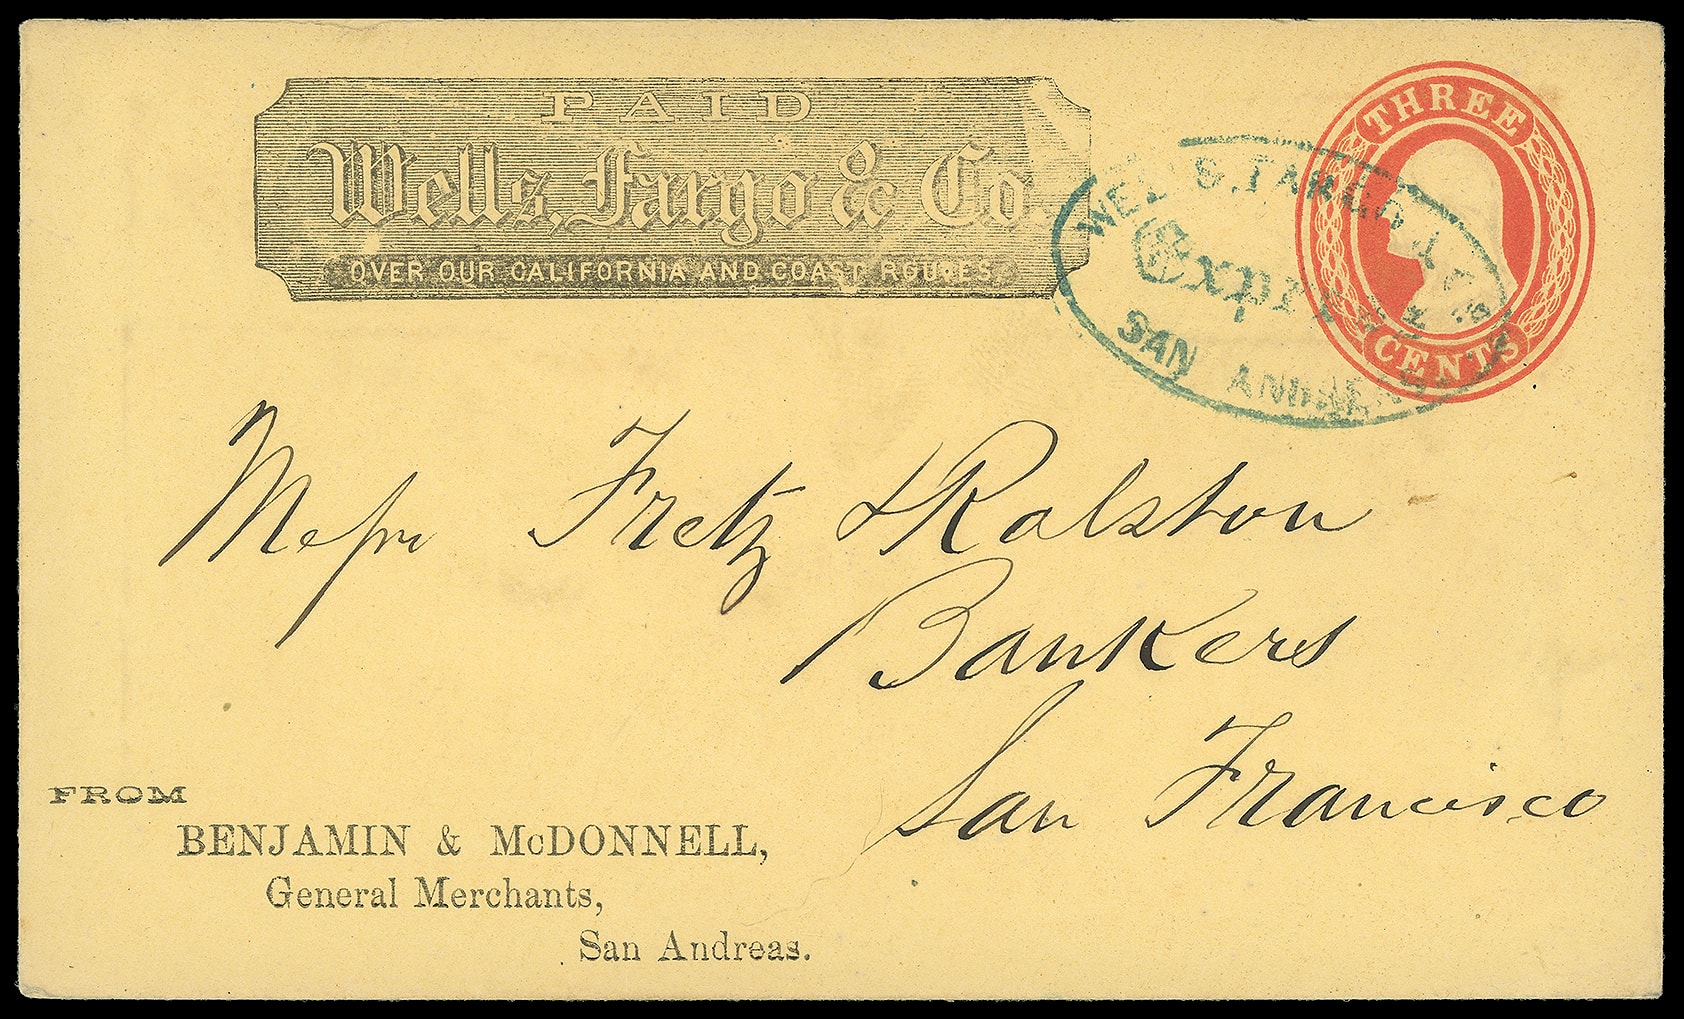 PAID
Wells, Fargo & Co
OVER OUR CALIFORNIA AND COAST ROUTES.
THREE
CENTS
WELLS, FARGO & CO'S
Express
SAN ANDREAS
Messrs Fretz & Ralston
Bankers
San Francisco
FROM
BENJAMIN & McDONNELL,
General Merchants,
San Andreas.